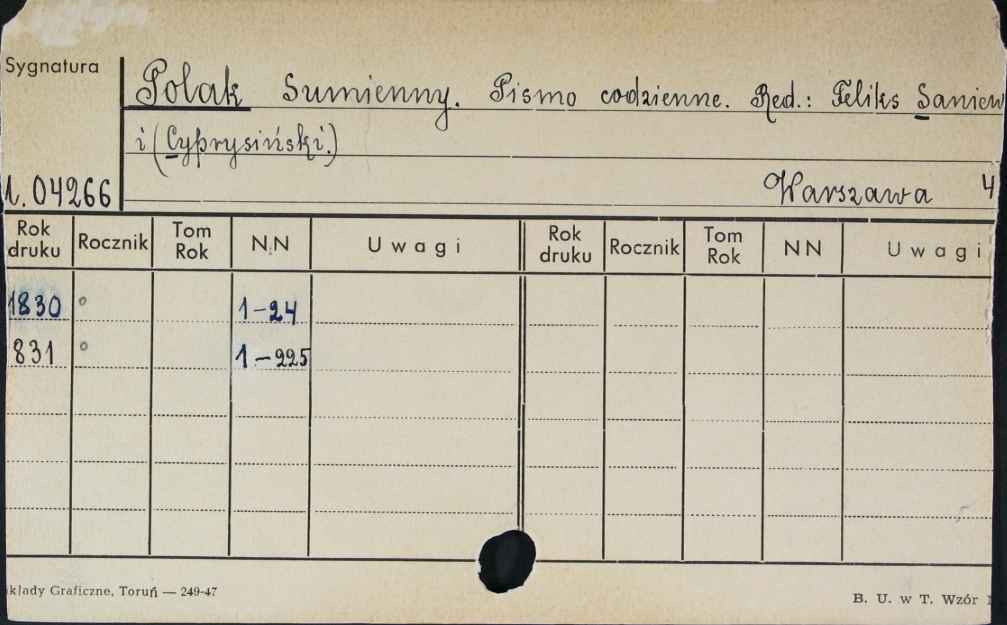 Sygnatura
Polak Sumienny. Pismo codzienne. Red.: Feliks Saniew
i (Cyprysiński.)
1.04266
Warszawa 4
Rok druku Rocznik Tom Rok NN Uwagi Rok druku Rocznik Tom Rok NN Uwagi
1830 ° 1-24
831 ° 1-225
kłady Graficzne, Toruń — 249-47
B. U. w T. Wzór